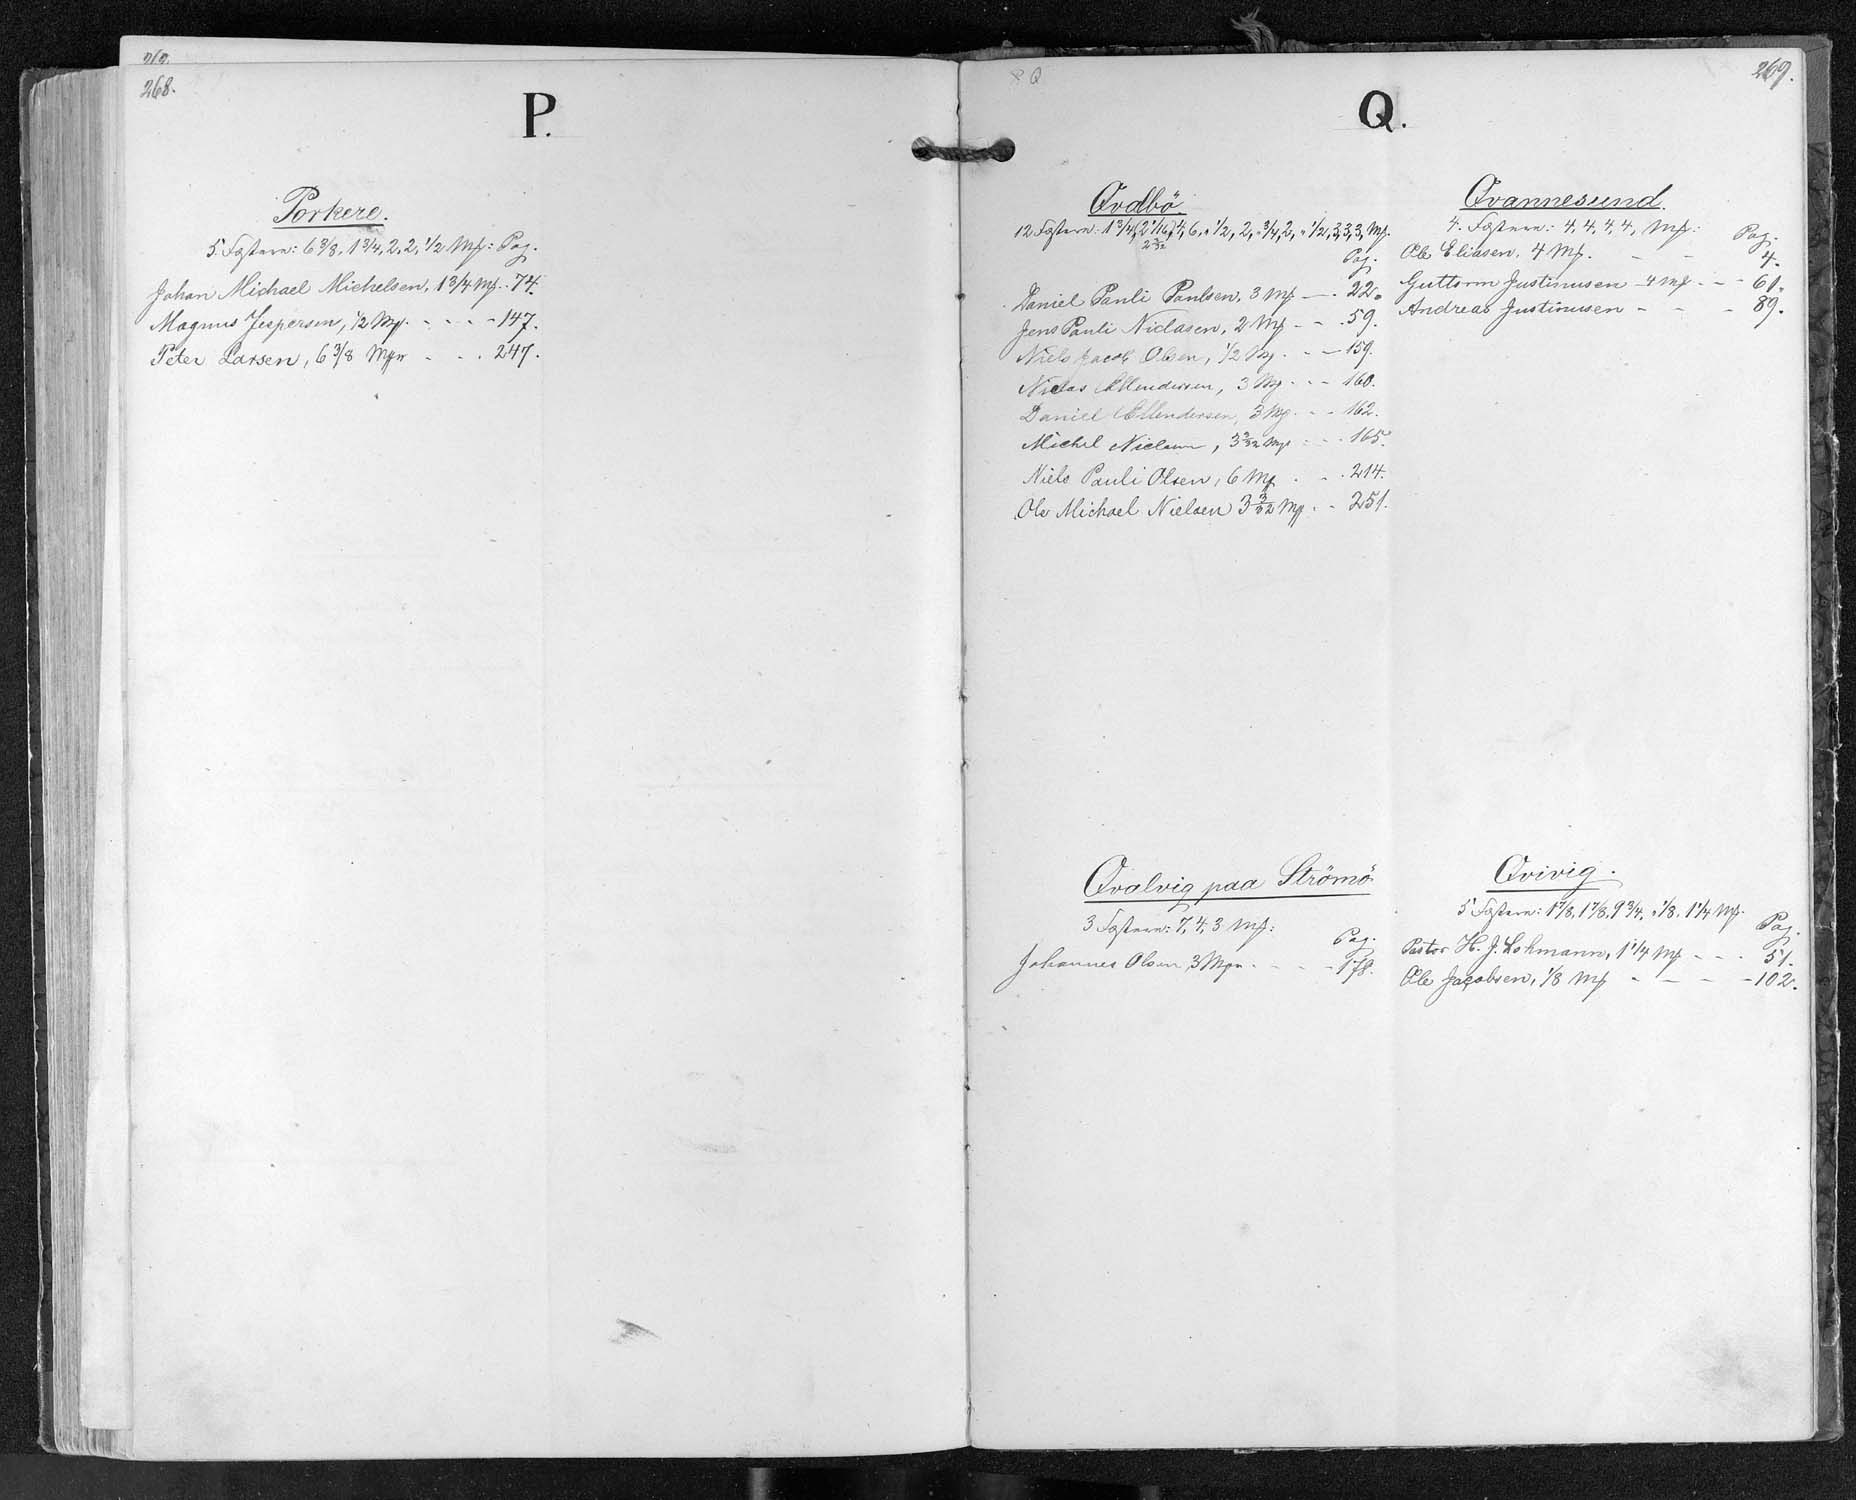 262.
268.
P.
Porkere.
5 Fæstere: 6 3/8, 1 3/4, 2, 2, 1/2 Mk: Pag.
Johan Michael Michelsen, 1 3/4 Mk. - 74.
Magnus Jespersen, 1/2 Mk. - - - - 147.
Peter Larsen, 6 3/8 Mkr - - - 247.
P Q
269.
Q.
Qvalbö
12 Fæstere: 1 3/4, 6, " 1/2, 2, " 3/4, 2, " 1/2, 3, 3, 3, Mk.
Pag.
Daniel Pauli Poulsen, 3 Mk - - 22.
Jens Pauli Niclasen, 2 Mk - - - 59.
Niels Jacob Olsen, 1/2 Mk. - - - 159.
Niclas Ellendersen, 3 Mk - - - 160.
Daniel Ellendersen, 3 Mk. - - 162.
Michel Niclasen, 3 3/32 Mk - - - 165.
Niels Pauli Olsen, 6 Mk - - - 214.
Ole Michael Nielsen 3 3/32 Mk - - 251.
Qvannesund.
4. Fæstere: 4, 4, 4, 4, Mk:
Pag.
Ole Eliasen, 4 Mk. - - 4.
Guttorm Justinusen - 4 Mk - - - 61.
Andreas Justinusen - - - 89.
Qvalvig paa Strömö
3 Fæstere: 7, 4, 3 Mk:
Pag.
Johannes Olsen, 3 Mkr - - - - 178.
Qvivig.
5 Fæstere: 1 7/8, 1 7/8, 9 3/4, " 1/8, 1 1/4 Mk.
Pag.
Pastor H. J. Lohmann, 1 1/4 Mk - - - 51.
Ole Jacobsen, 1/8 Mk - - - - 102.